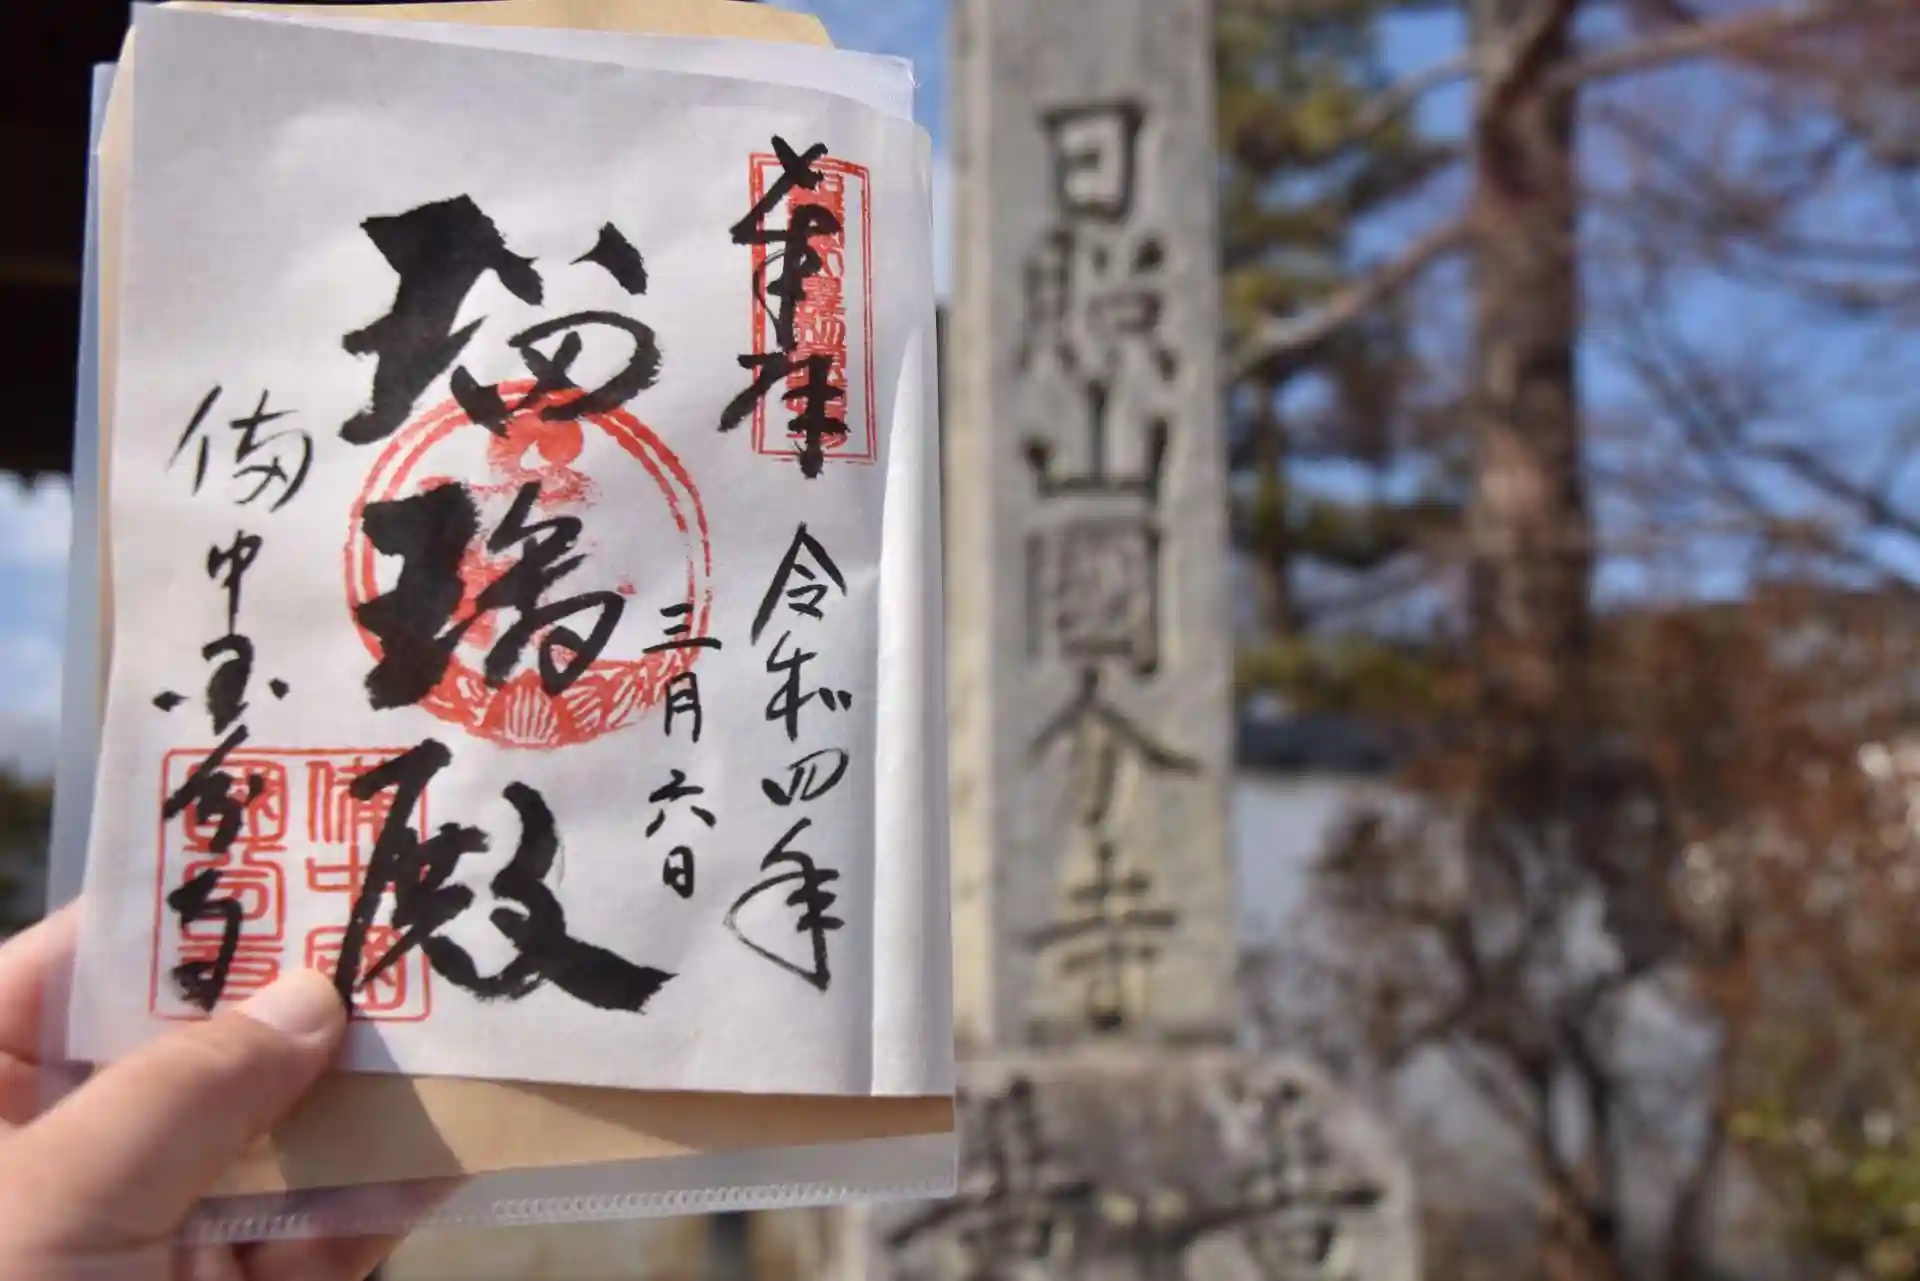 奉拝
令和四年
三月六日
瑠璃殿
備中国分寺
備中國
國分寺
日照山國分寺